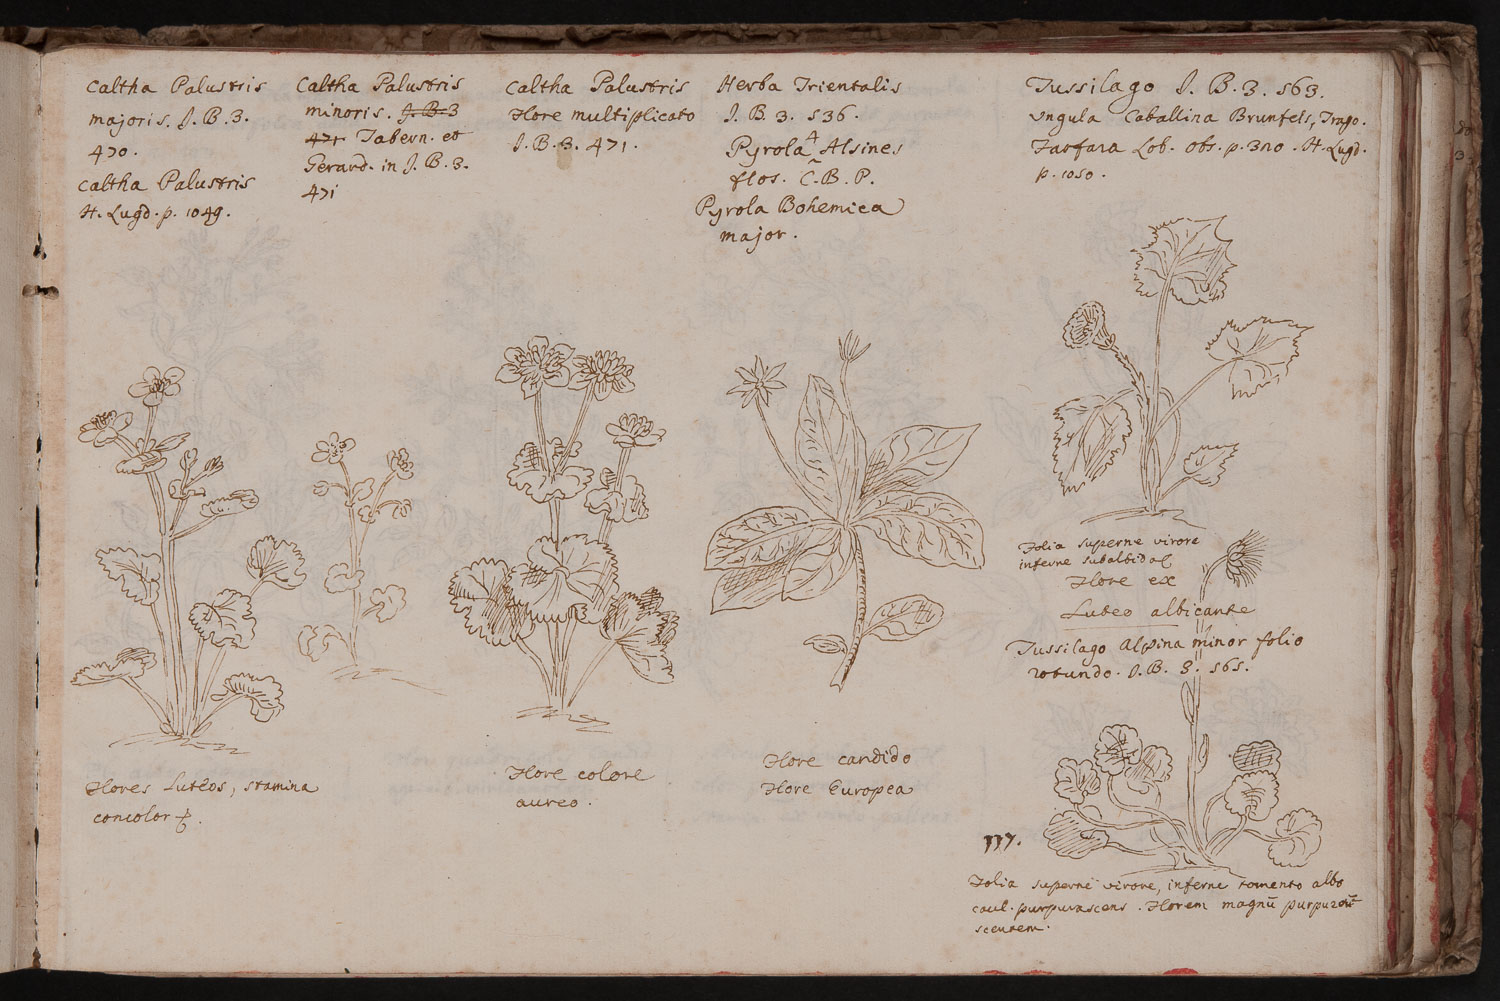 Caltha Palustris
majoris. J. B. 3.
470.
Caltha Palustris
H. Lugd. p. 1049.
Caltha Palustris
minoris. J. B. 3
471 Tabern. et
Gerard. in J. B. 3.
471
Caltha Palustris
Flore multiplicato
J. B. 3. 471.
Herba Trientalis
J. B. 3. 536.
4
Pyrola Alsines
flos. C. B. P.
Pyrola Bohemica
major.
Tussilago J. B. 3. 563.
Ungula Caballina Brunfels, Trago.
Farfara Lob. obs. p. 320. H. Lugd.
p. 1050.
Folia superne virore
inferne subalbida
Flore ex
Luteo albicante
Tussilago Alpina minor folio
rotundo. J. B. 3. 565.
Flores Luteos, stamina
concolor
Flore colore
aureo.
Flore candido
Flore Europea
117.
Folia superne virore, inferne tomento albo
caul. purpurascens. Florem magnū purpura
scentem.